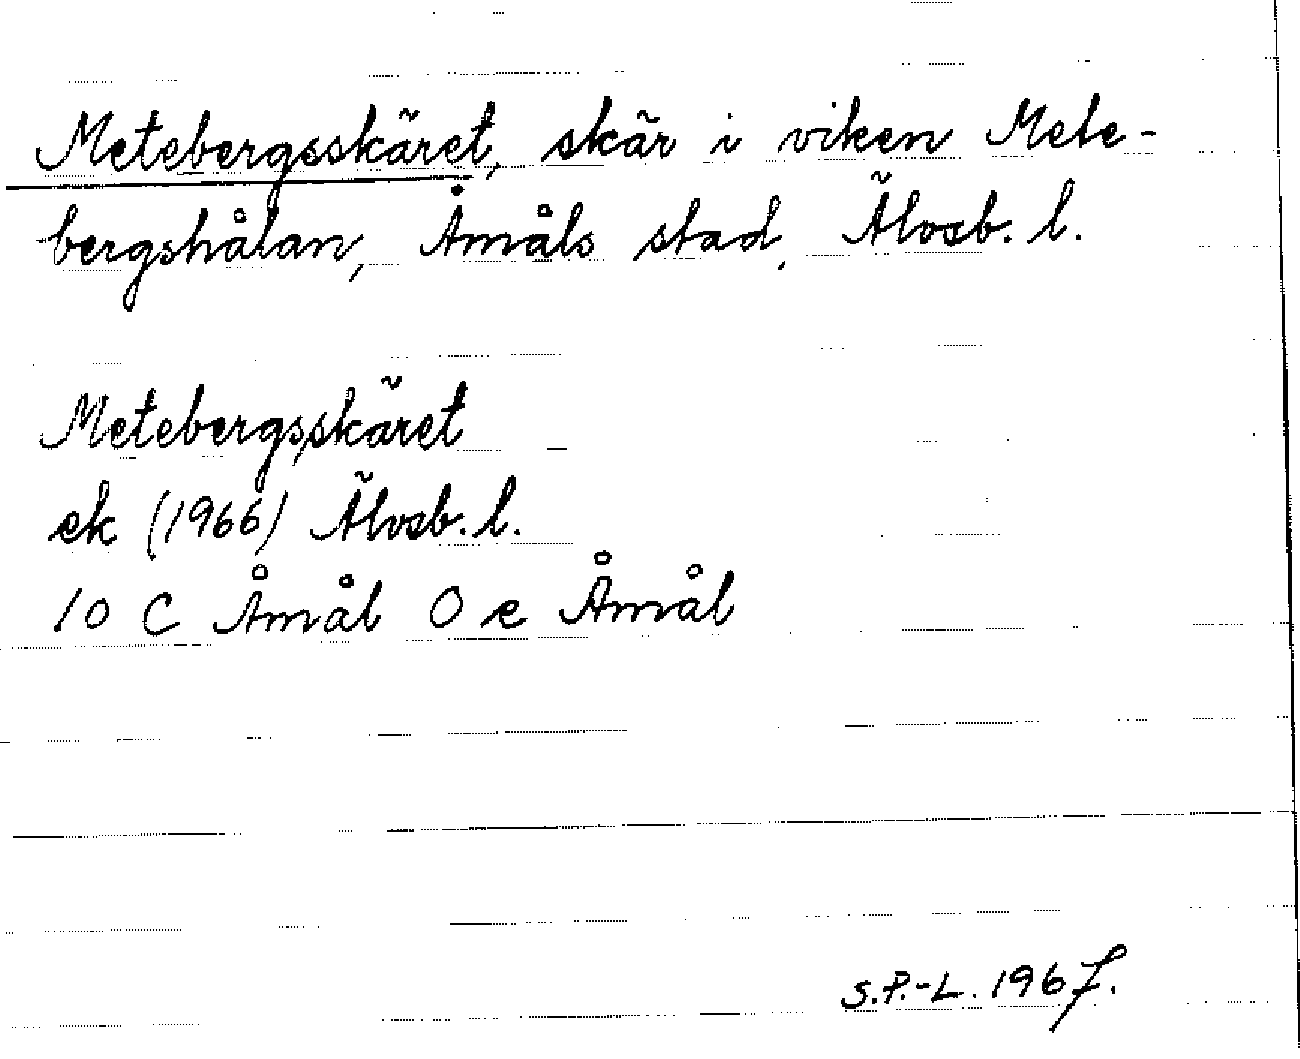 Metebergsskäret, skär i viken Mete-
bergshålan, Åmåls stad, Älvsb. l.
Metebergsskäret
ek (1966) Älvsb. l.
10 C Åmål 0 e Åmål
S.P.-L. 1967.